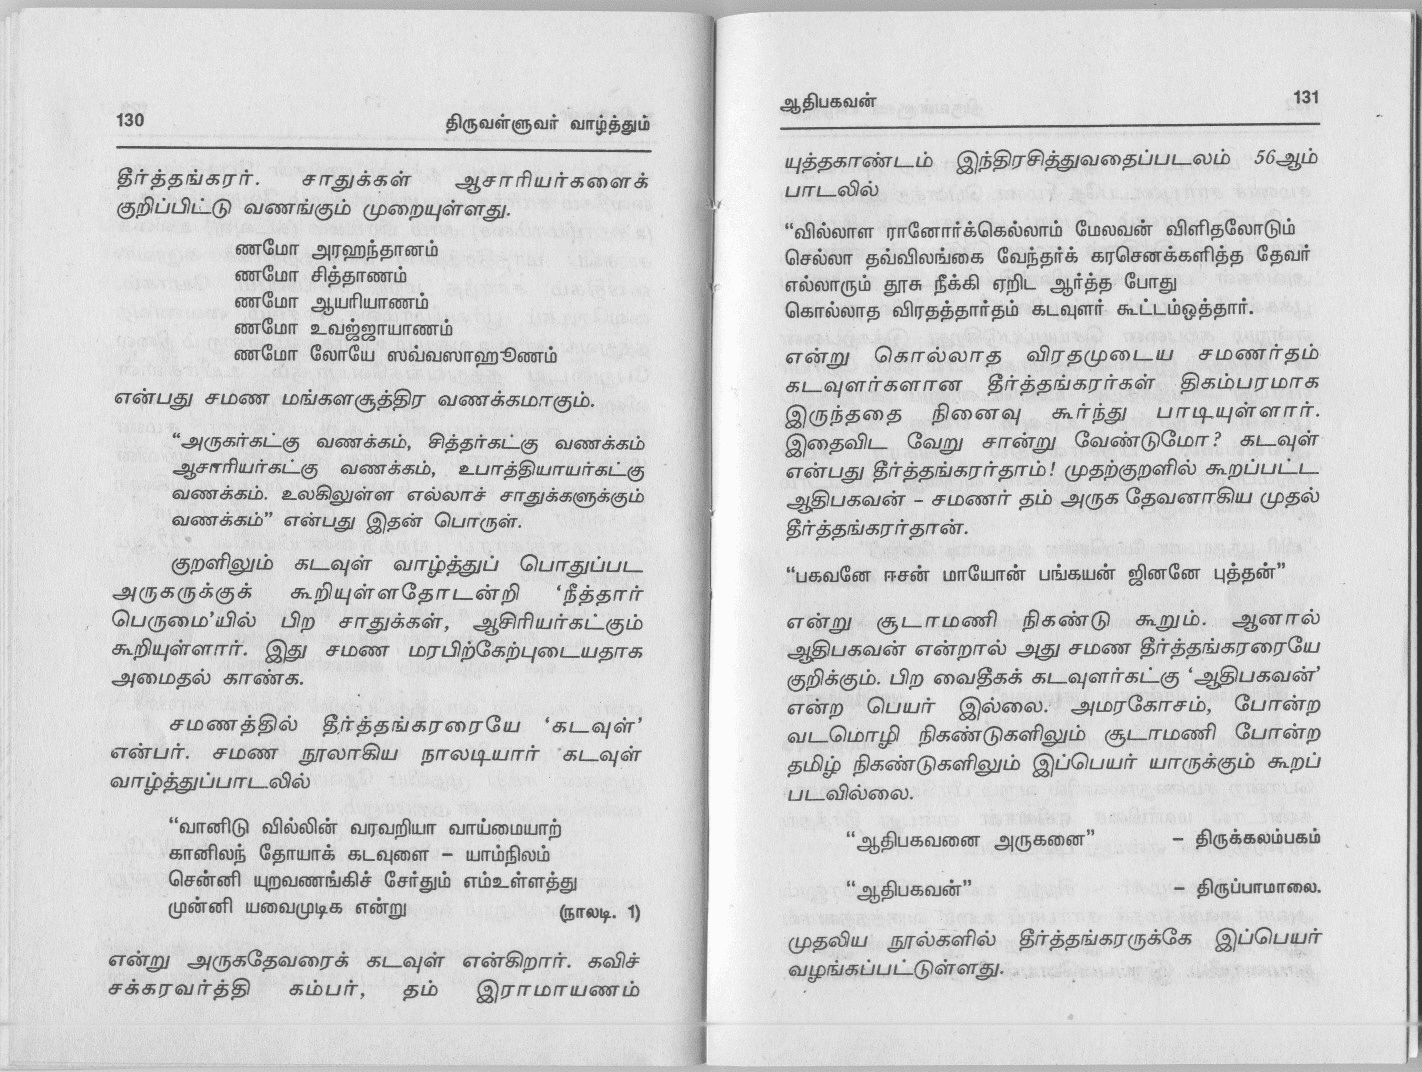 130 திருவள்ளுவர் வாழ்த்தும்
தீர்த்தங்கரர். சாதுக்கள் ஆசாரியர்களைக்
குறிப்பிட்டு வணங்கும் முறையுள்ளது.
ணமோ அரஹந்தானம்
ணமோ சித்தாணம்
ணமோ ஆயரியாணம்
ணமோ உவஜ்ஜாயாணம்
ணமோ லோயே ஸவ்வஸாஹூணம்
என்பது சமண மங்களசூத்திர வணக்கமாகும்.
“அருகர்கட்கு வணக்கம், சித்தர்கட்கு வணக்கம்
ஆசாரியர்கட்கு வணக்கம், உபாத்தியாயர்கட்கு
வணக்கம். உலகிலுள்ள எல்லாச் சாதுக்களுக்கும்
வணக்கம்” என்பது இதன் பொருள்.
குறளிலும் கடவுள் வாழ்த்துப் பொதுப்பட
அருகருக்குக் கூறியுள்ளதோடன்றி ‘நீத்தார்
பெருமை’யில் பிற சாதுக்கள், ஆசிரியர்கட்கும்
கூறியுள்ளார். இது சமண மரபிற்கேற்புடையதாக
அமைதல் காண்க.
சமணத்தில் தீர்த்தங்கரரையே ‘கடவுள்’
என்பர். சமண நூலாகிய நாலடியார் கடவுள்
வாழ்த்துப்பாடலில்
“வானிடு வில்லின் வரவறியா வாய்மையாற்
கானிலந் தோயாக் கடவுளை – யாம்நிலம்
சென்னி யுறவணங்கிச் சேர்தும் எம்உள்ளத்து
முன்னி யவைமுடிக என்று (நாலடி. 1)
என்று அருகதேவரைக் கடவுள் என்கிறார். கவிச்
சக்கரவர்த்தி கம்பர், தம் இராமாயணம்
ஆதிபகவன் 131
யுத்தகாண்டம் இந்திரசித்துவதைப்படலம் 56ஆம்
பாடலில்
“வில்லாள ரானோர்க்கெல்லாம் மேலவன் விளிதலோடும்
செல்லா தவ்விலங்கை வேந்தர்க் கரசெனக்களித்த தேவர்
எல்லாரும் தூசு நீக்கி ஏறிட ஆர்த்த போது
கொல்லாத விரதத்தார்தம் கடவுளர் கூட்டம்ஒத்தார்.
என்று கொல்லாத விரதமுடைய சமணர்தம்
கடவுளர்களான தீர்த்தங்கரர்கள் திகம்பரமாக
இருந்ததை நினைவு கூர்ந்து பாடியுள்ளார்.
இதைவிட வேறு சான்று வேண்டுமோ? கடவுள்
என்பது தீர்த்தங்கரர்தாம்! முதற்குறளில் கூறப்பட்ட
ஆதிபகவன் – சமணர் தம் அருக தேவனாகிய முதல்
தீர்த்தங்கரர்தான்.
“பகவனே ஈசன் மாயோன் பங்கயன் ஜினனே புத்தன்”
என்று சூடாமணி நிகண்டு கூறும். ஆனால்
ஆதிபகவன் என்றால் அது சமண தீர்த்தங்கரரையே
குறிக்கும். பிற வைதீகக் கடவுளர்கட்கு ‘ஆதிபகவன்’
என்ற பெயர் இல்லை. அமரகோசம், போன்ற
வடமொழி நிகண்டுகளிலும் சூடாமணி போன்ற
தமிழ் நிகண்டுகளிலும் இப்பெயர் யாருக்கும் கூறப்
படவில்லை.
“ஆதிபகவனை அருகனை” – திருக்கலம்பகம்
“ஆதிபகவன்” – திருப்பாமாலை.
முதலிய நூல்களில் தீர்த்தங்கரருக்கே இப்பெயர்
வழங்கப்பட்டுள்ளது.